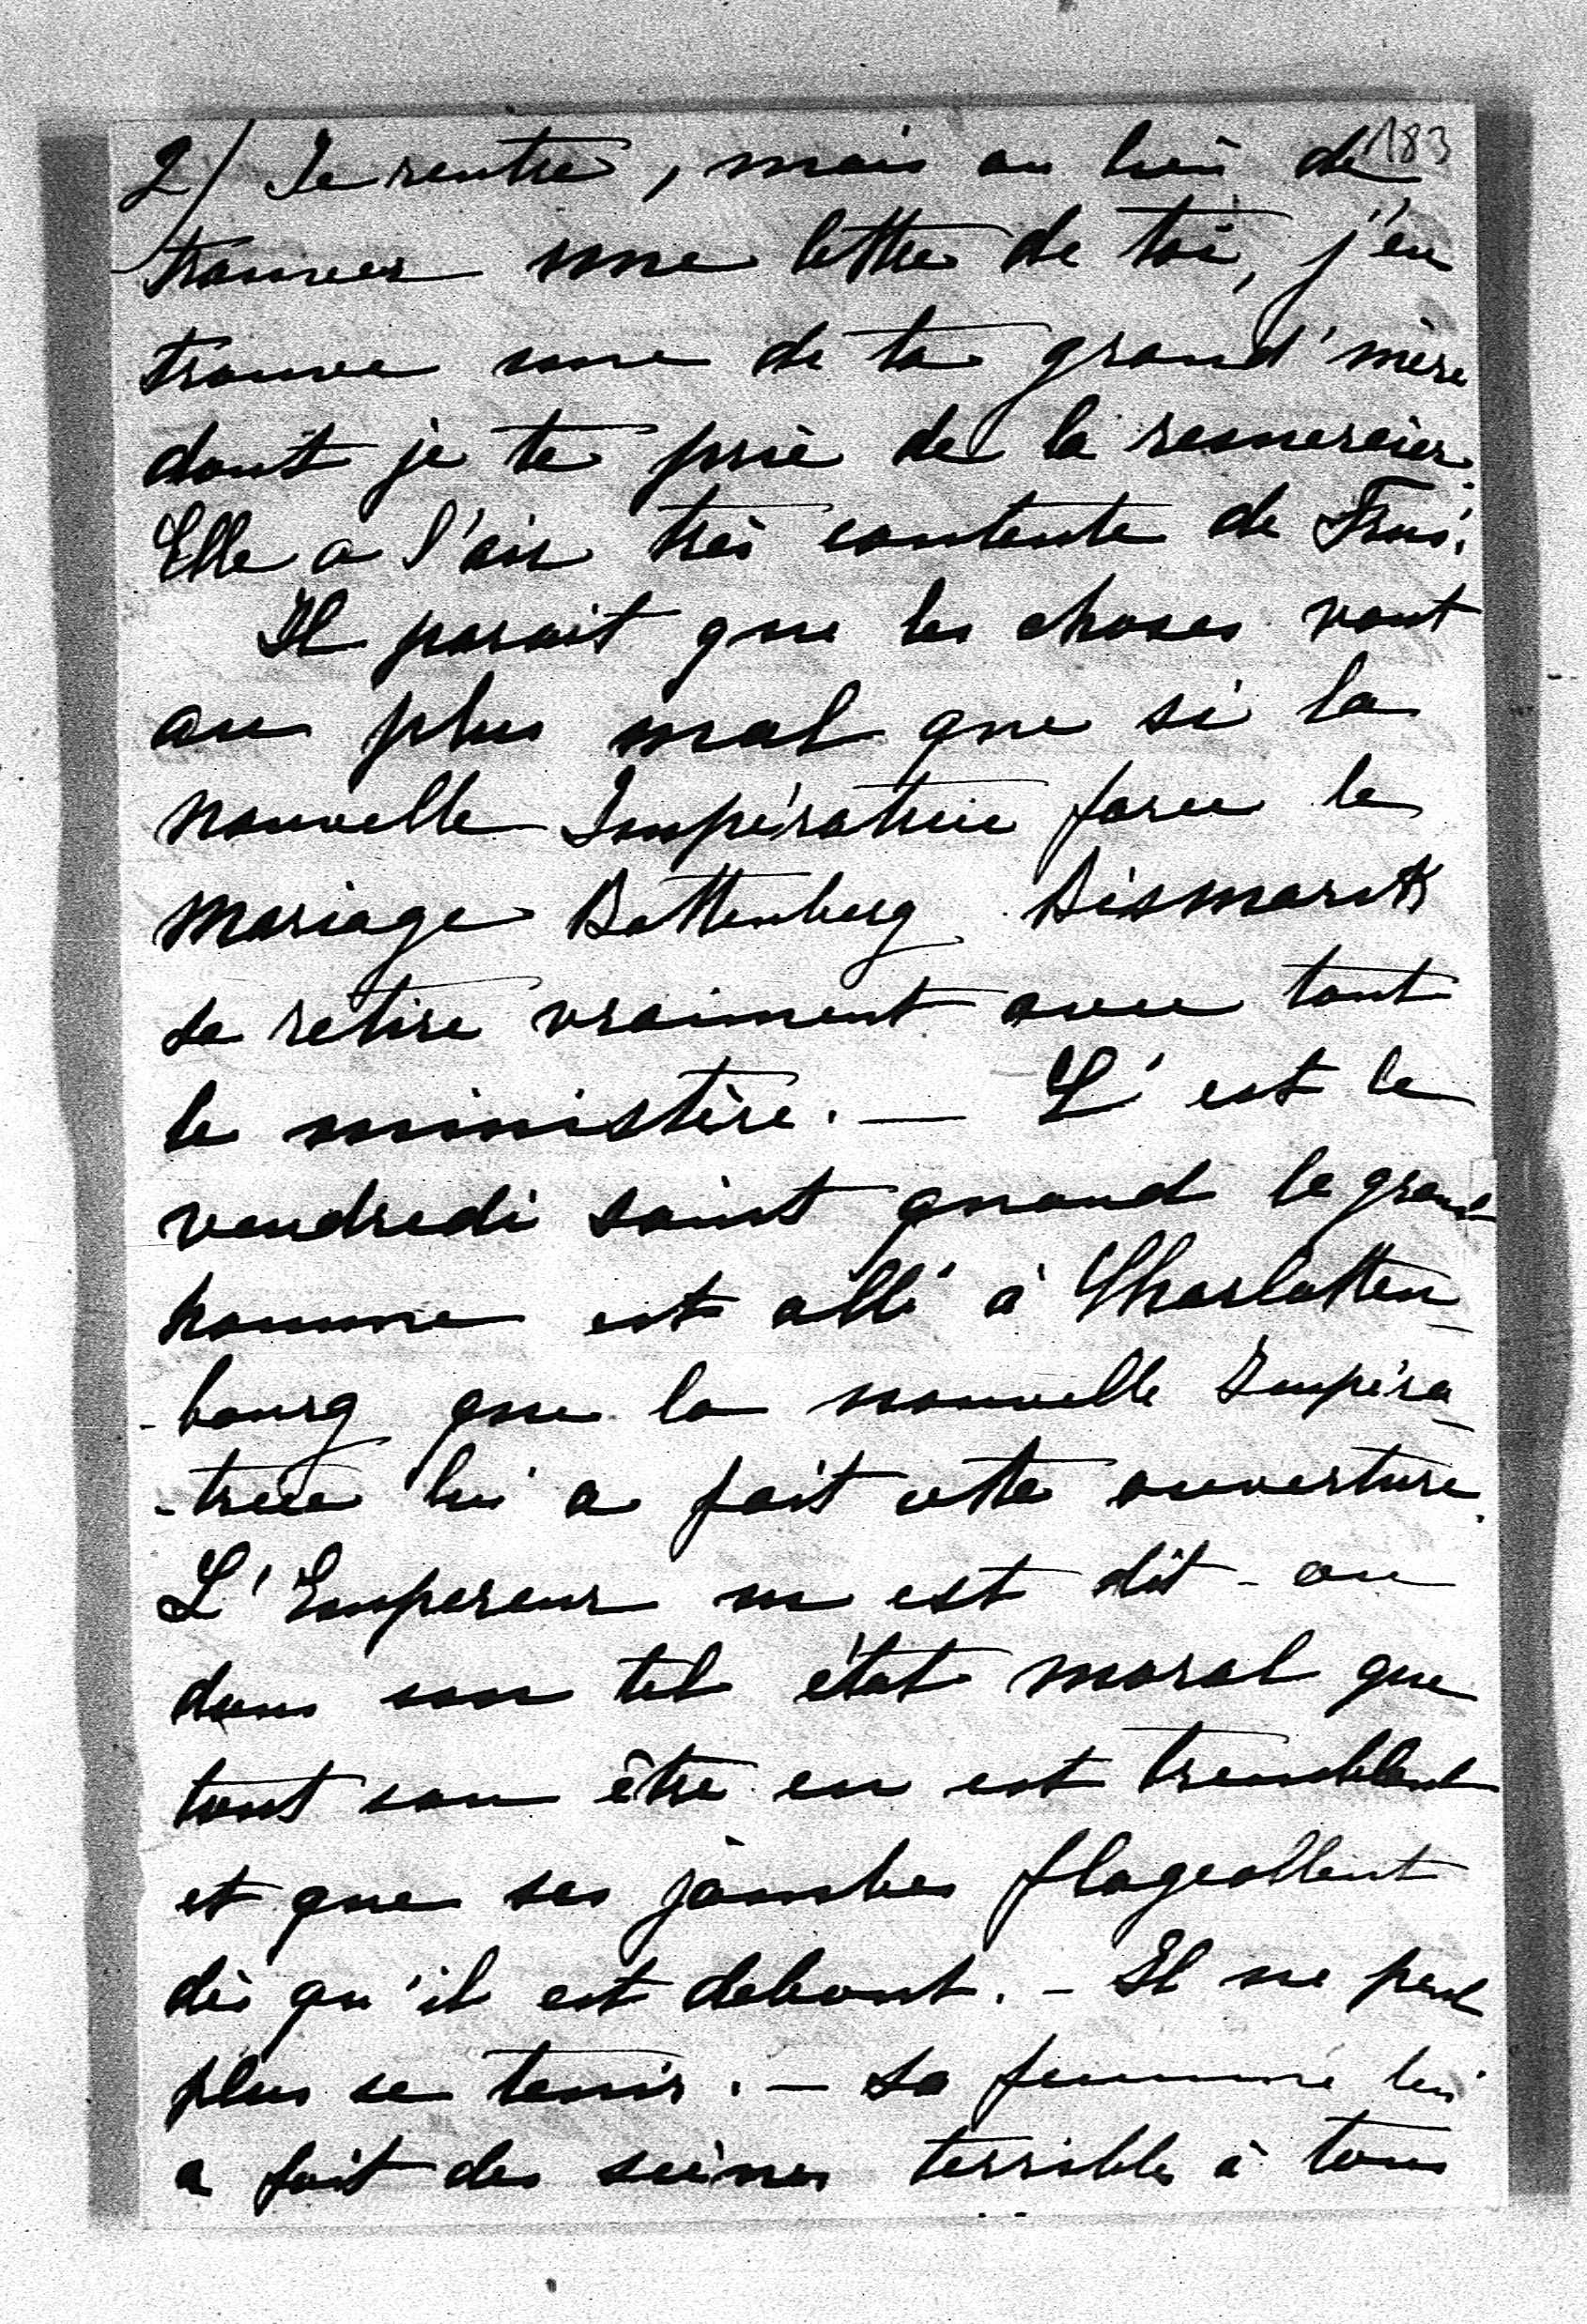 183
2/ Je rentre, mais au lieu de
trouver une lettre de toi, j'en
trouve une de ta grand'mère
dont je te prie de la remercier.
Elle a l'air très contente de
Il parait que les choses vont
au plus mal que si la
nouvelle Impératrice force le
mariage Battenberg Bismark
se retire vraiment avec tout
le ministère. — C'est le
vendredi saint quand le grand
homme est allé à Charlotten-
-bourg que la nouvelle Impéra-
-trice lui a fait cette ouverture.
L'Empereur en est dit-on
dans un tel état moral que
tout son être en est tremblant
et que ses jambes flageollent
dès qu'il est debout. - Il ne peut
plus se tenir. — Sa femme lui
a fait des scènes terribles à tous